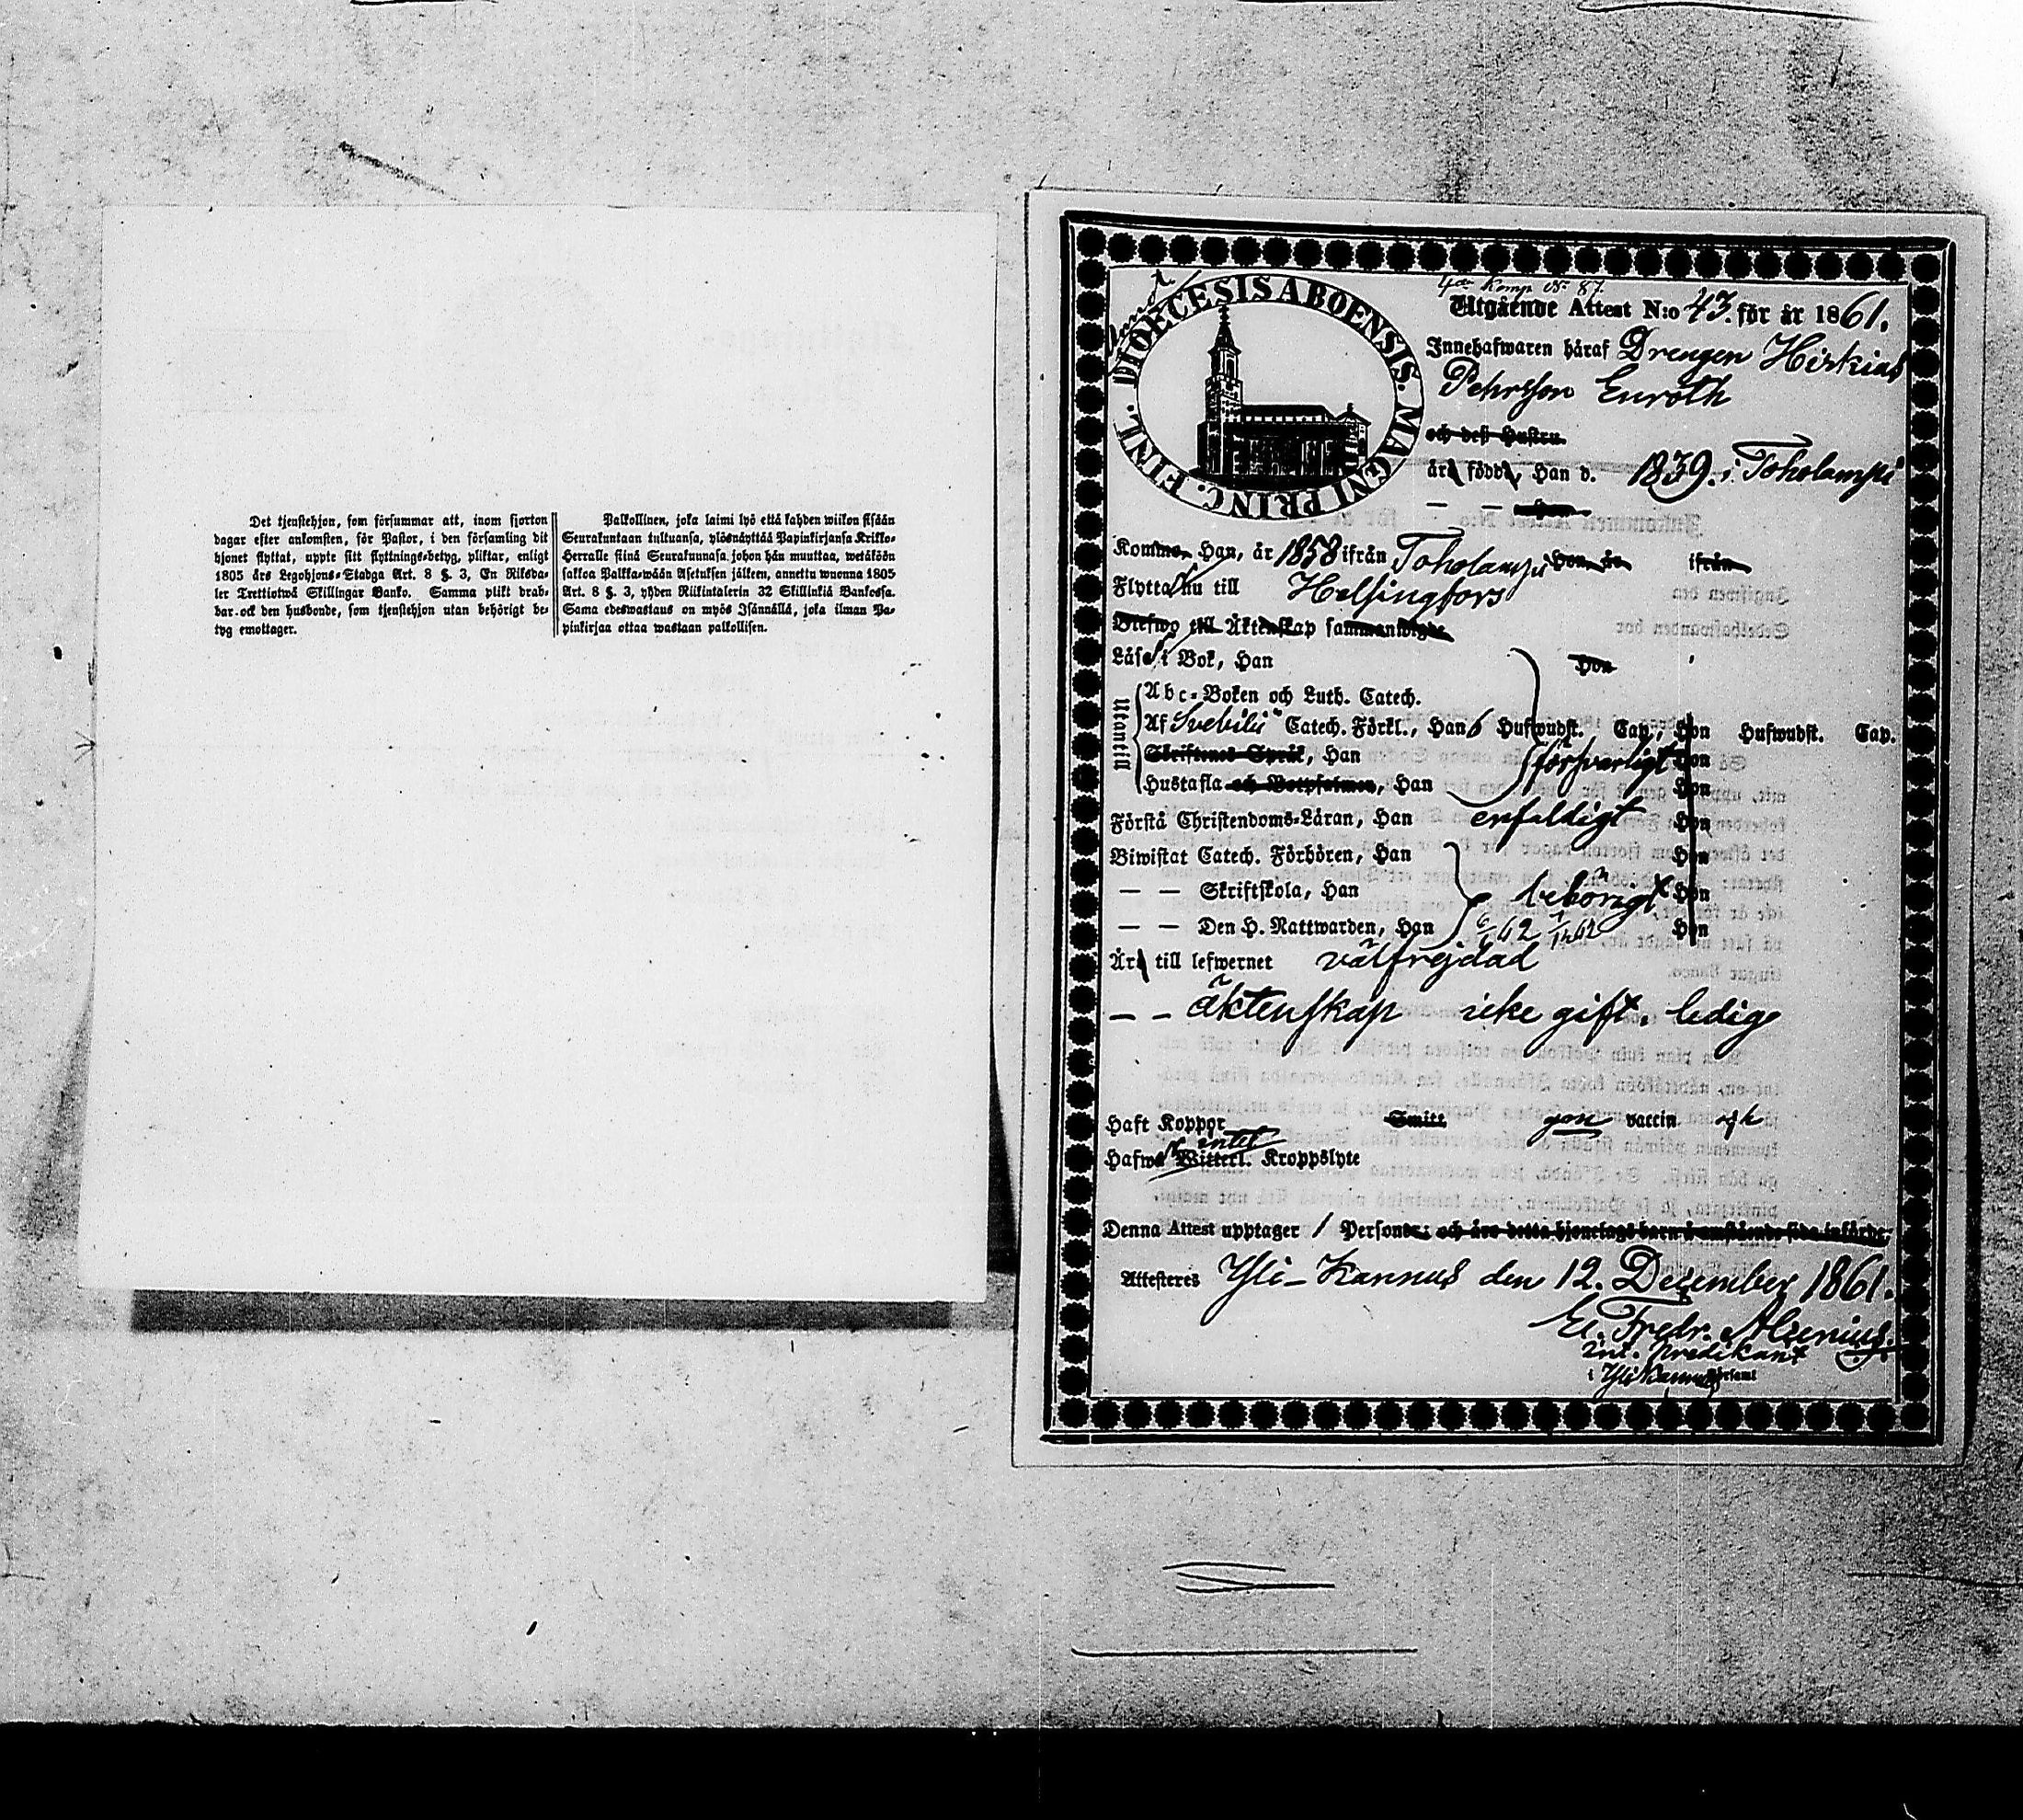 Det tjenstehjon, som försummar att, inom fjorton
dagar efter ankomsten, för Pastor, i den församling dit
hjonet flyttat, uppte sitt flyttnings-betyg, pliktar, enligt
1805 års Legohjons-Stadga Art. 8 §. 3, En Riksda-
ler Trettiotwå Skillingar Banko. Samma plikt drab-
bar ock den husbonde, som tjenstehjon utan behörigt be-
tyg emottager.
Palkollinen, joka laimi lyö että kahden wiikon sisään
Seurakuntaan tultuansa, ylösnäyttää Papinkirjansa Kirkko-
Herralle siinä Seurakunnasa johon hän muuttaa, wetäköön
sakkoa Palkka-wään Asetuksen jälkeen, annettu wuonna 1805
Art. 8 §. 3, yhden Riikintalerin 32 Skillinkiä Bankossa.
Sama edeswastaus on myös Isännällä, joka ilman Pa-
pinkirjaa ottaa wastaan palkollisen.
DIOECESIS ABOENSIS. MAGNI PRINC. FINL.
Komp. No 87.
Utgående Attest N:o 43. för år 1861.
Innehafwaren häraf Drengen Hiskias
Pehrsson Enroth
och dess Hustru
är född, Han d. 1839. i Toholampi
— — Hon
Komme, Han, år 1858 ifrån Toholampi Hon, år ifrån
Flytta nu till Helsingfors
Blefwo till Äktenskap sammanwigde
Läse i Bok, Han Hon
Utantill
Abc-Boken och Luth. Catech.
Af Svebilii Catech. Förkl., Han 6 Hufwudst. Cap., Hon Hufwudst. Cap.
Skriftenes Språk, Han försvarligt Hon
Hustafla och Botpsalmen, Han Hon
Förstå Christendoms-Läran, Han enfaldigt Hon
Biwistat Catech. Förhören, Han Hon
— — Skriftskola, Han behörigt Hon
— — Den H. Nattwarden, Han Hon
Är till lefwernet välfrejdad
— — äktenskap icke gift, ledig
Haft Koppor Smitt gm vaccin
Hafwa Witterl. intet Kroppslyte
Denna Attest upptager 1 Personer; och äro detta hjonelags barn å omstående sida införde.
Attesteres Yli-Kannus den 12. December 1861.
El. Fredr. Alcenius.
Predikant
i Ylikannus Församl